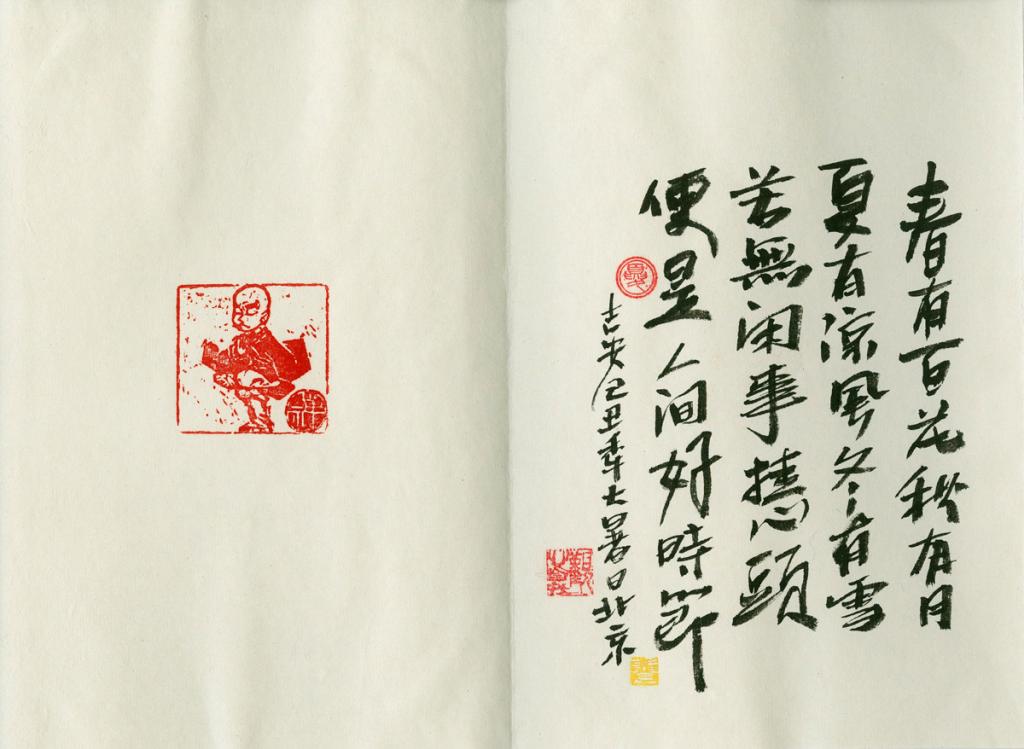 春有百花秋有月
夏有凉風冬有雪
若無闲事挂心頭
便是人间好時節
己丑年大暑日北京
祥